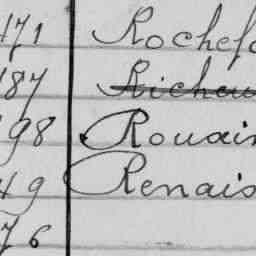 171 Rochefo
187 Richeu
198 Rouain
49 Renais
76